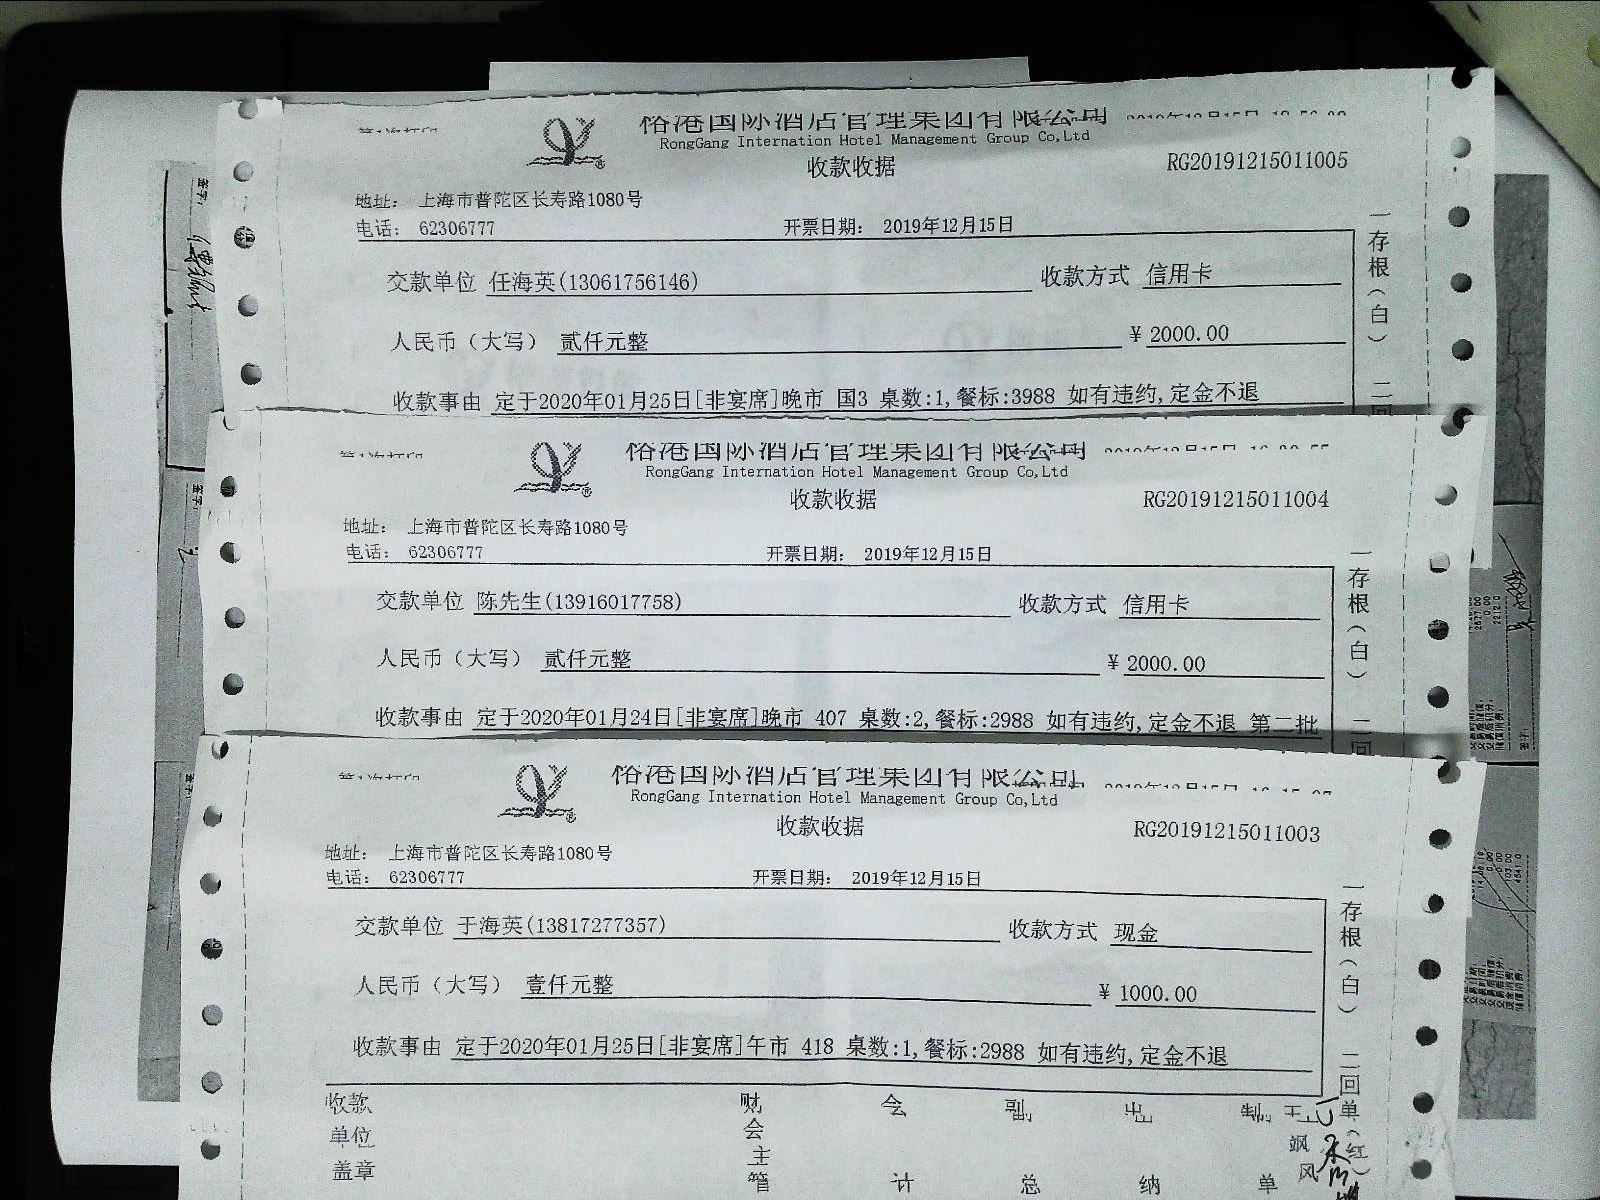 裕港国际酒店管理集团有限公司
RongGang Internation Hotel Management Group Co,Ltd
收款收据 RG20191215011005
地址： 上海市普陀区长寿路1080号
电话： 62306777 开票日期： 2019年12月15日
交款单位 任海英(13061756146) 收款方式 信用卡
人民币（大写） 贰仟元整 ¥ 2000.00
收款事由 定于2020年01月25日[非宴席]晚市 国3 桌数:1,餐标:3988 如有违约,定金不退
一存根（白） 二回
裕港国际酒店管理集团有限公司
RongGang Internation Hotel Management Group Co,Ltd
收款收据 RG20191215011004
地址： 上海市普陀区长寿路1080号
电话： 62306777 开票日期： 2019年12月15日
交款单位 陈先生(13916017758) 收款方式 信用卡
人民币（大写） 贰仟元整 ¥ 2000.00
收款事由 定于2020年01月24日[非宴席]晚市 407 桌数:2,餐标:2988 如有违约,定金不退 第二批
一存根（白） 二回
裕港国际酒店管理集团有限公司
RongGang Internation Hotel Management Group Co,Ltd
收款收据 RG20191215011003
地址： 上海市普陀区长寿路1080号
电话： 62306777 开票日期： 2019年12月15日
交款单位 于海英(13817277357) 收款方式 现金
人民币（大写） 壹仟元整 ¥ 1000.00
收款事由 定于2020年01月25日[非宴席]午市 418 桌数:1,餐标:2988 如有违约,定金不退
一存根（白） 二回单（红）
收款单位盖章 财会主管 会计 副总 出纳 制单 王飒风